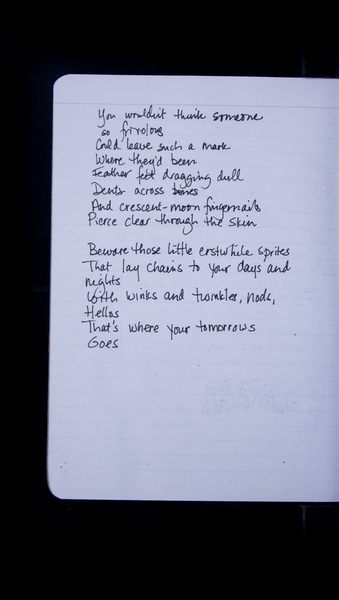 You wouldn't think someone
so frivolous
Could leave such a mark
Where they'd been
Feather feet dragging dull
Dents across bones
And crescent-moon fingernails
Pierce clear through the skin
Beware those little erstwhile sprites
That lay chains to your days and
nights
With winks and twinkles, nods,
Hellos
That's where your tomorrows
Goes